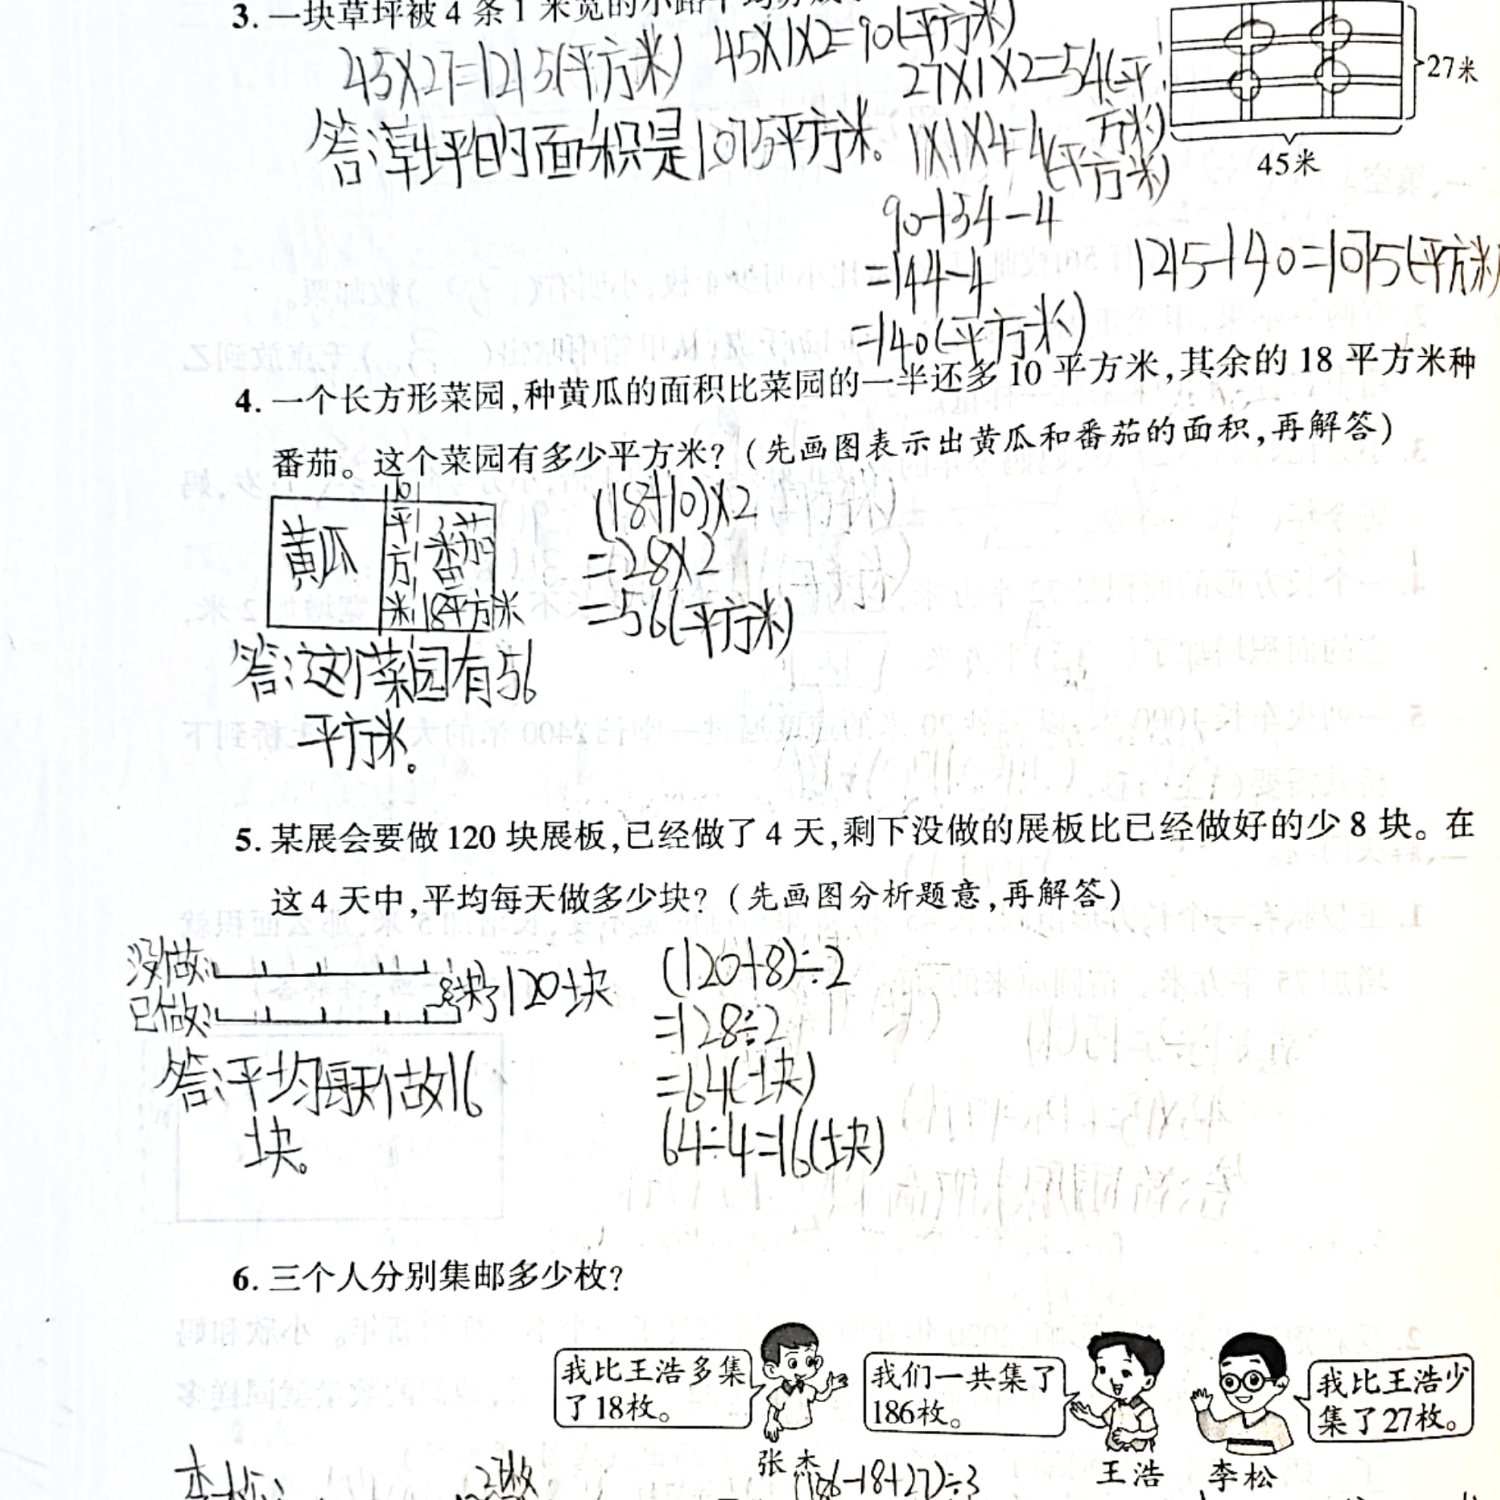 3. 一块草坪被4条1米宽的小路平均分成
45×27=1215(平方米) 45×1×2=90(平方米)
27×1×2=54(平
方米)
27米
45米
答:草坪的面积是1075平方米。 1×1×4=4(平方米)
90+54-4
=144-4
=140(平方米)
1215-140=1075(平方米)
4. 一个长方形菜园,种黄瓜的面积比菜园的一半还多10平方米,其余的18平方米种
番茄。这个菜园有多少平方米?(先画图表示出黄瓜和番茄的面积,再解答)
黄瓜
10平方米
番茄
18平方米
(18+10)×2
=28×2
=56(平方米)
答:这个菜园有56
平方米。
5. 某展会要做120块展板,已经做了4天,剩下没做的展板比已经做好的少8块。在
这4天中,平均每天做多少块?(先画图分析题意,再解答)
没做:
已做:
8块
120块
(120+8)÷2
=128÷2
=64(块)
64÷4=16(块)
答:平均每天做16
块。
6. 三个人分别集邮多少枚?
我比王浩多集
了18枚。
张杰
我们一共集了
186枚。
王浩
李松
我比王浩少
集了27枚。
(186-18+27)÷3